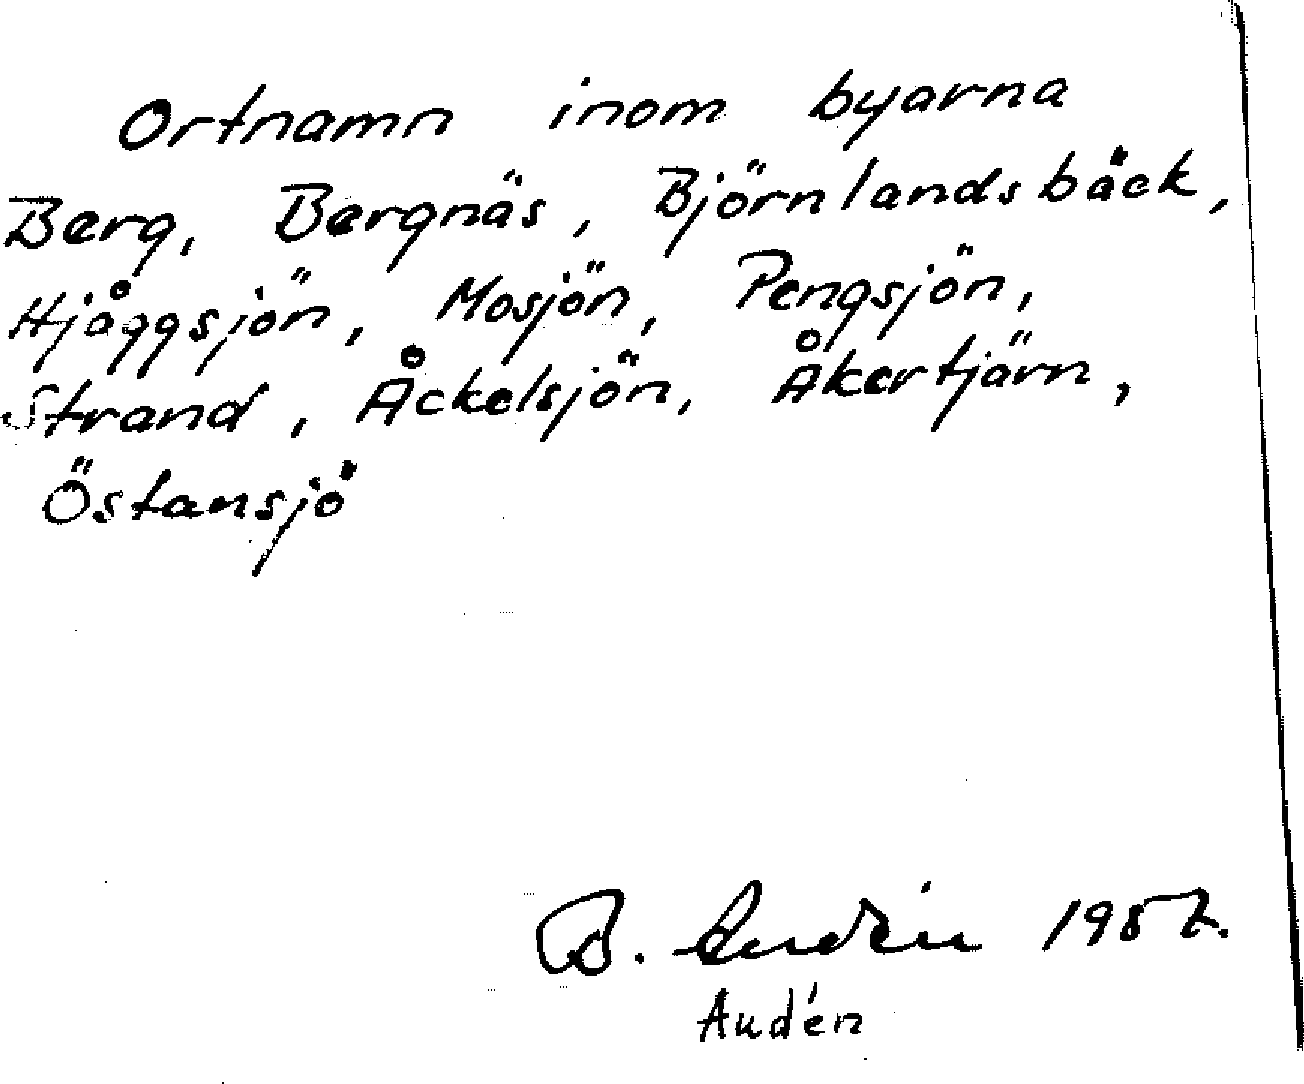 Ortnamn inom byarna
Berg, Bergnäs, Björnlandsbäck,
Hjåggsjön, Mosjön, Pengsjön,
Strand, Åckelsjön, Åkertjärn,
Östansjö
B. Audén 1987.
Audén